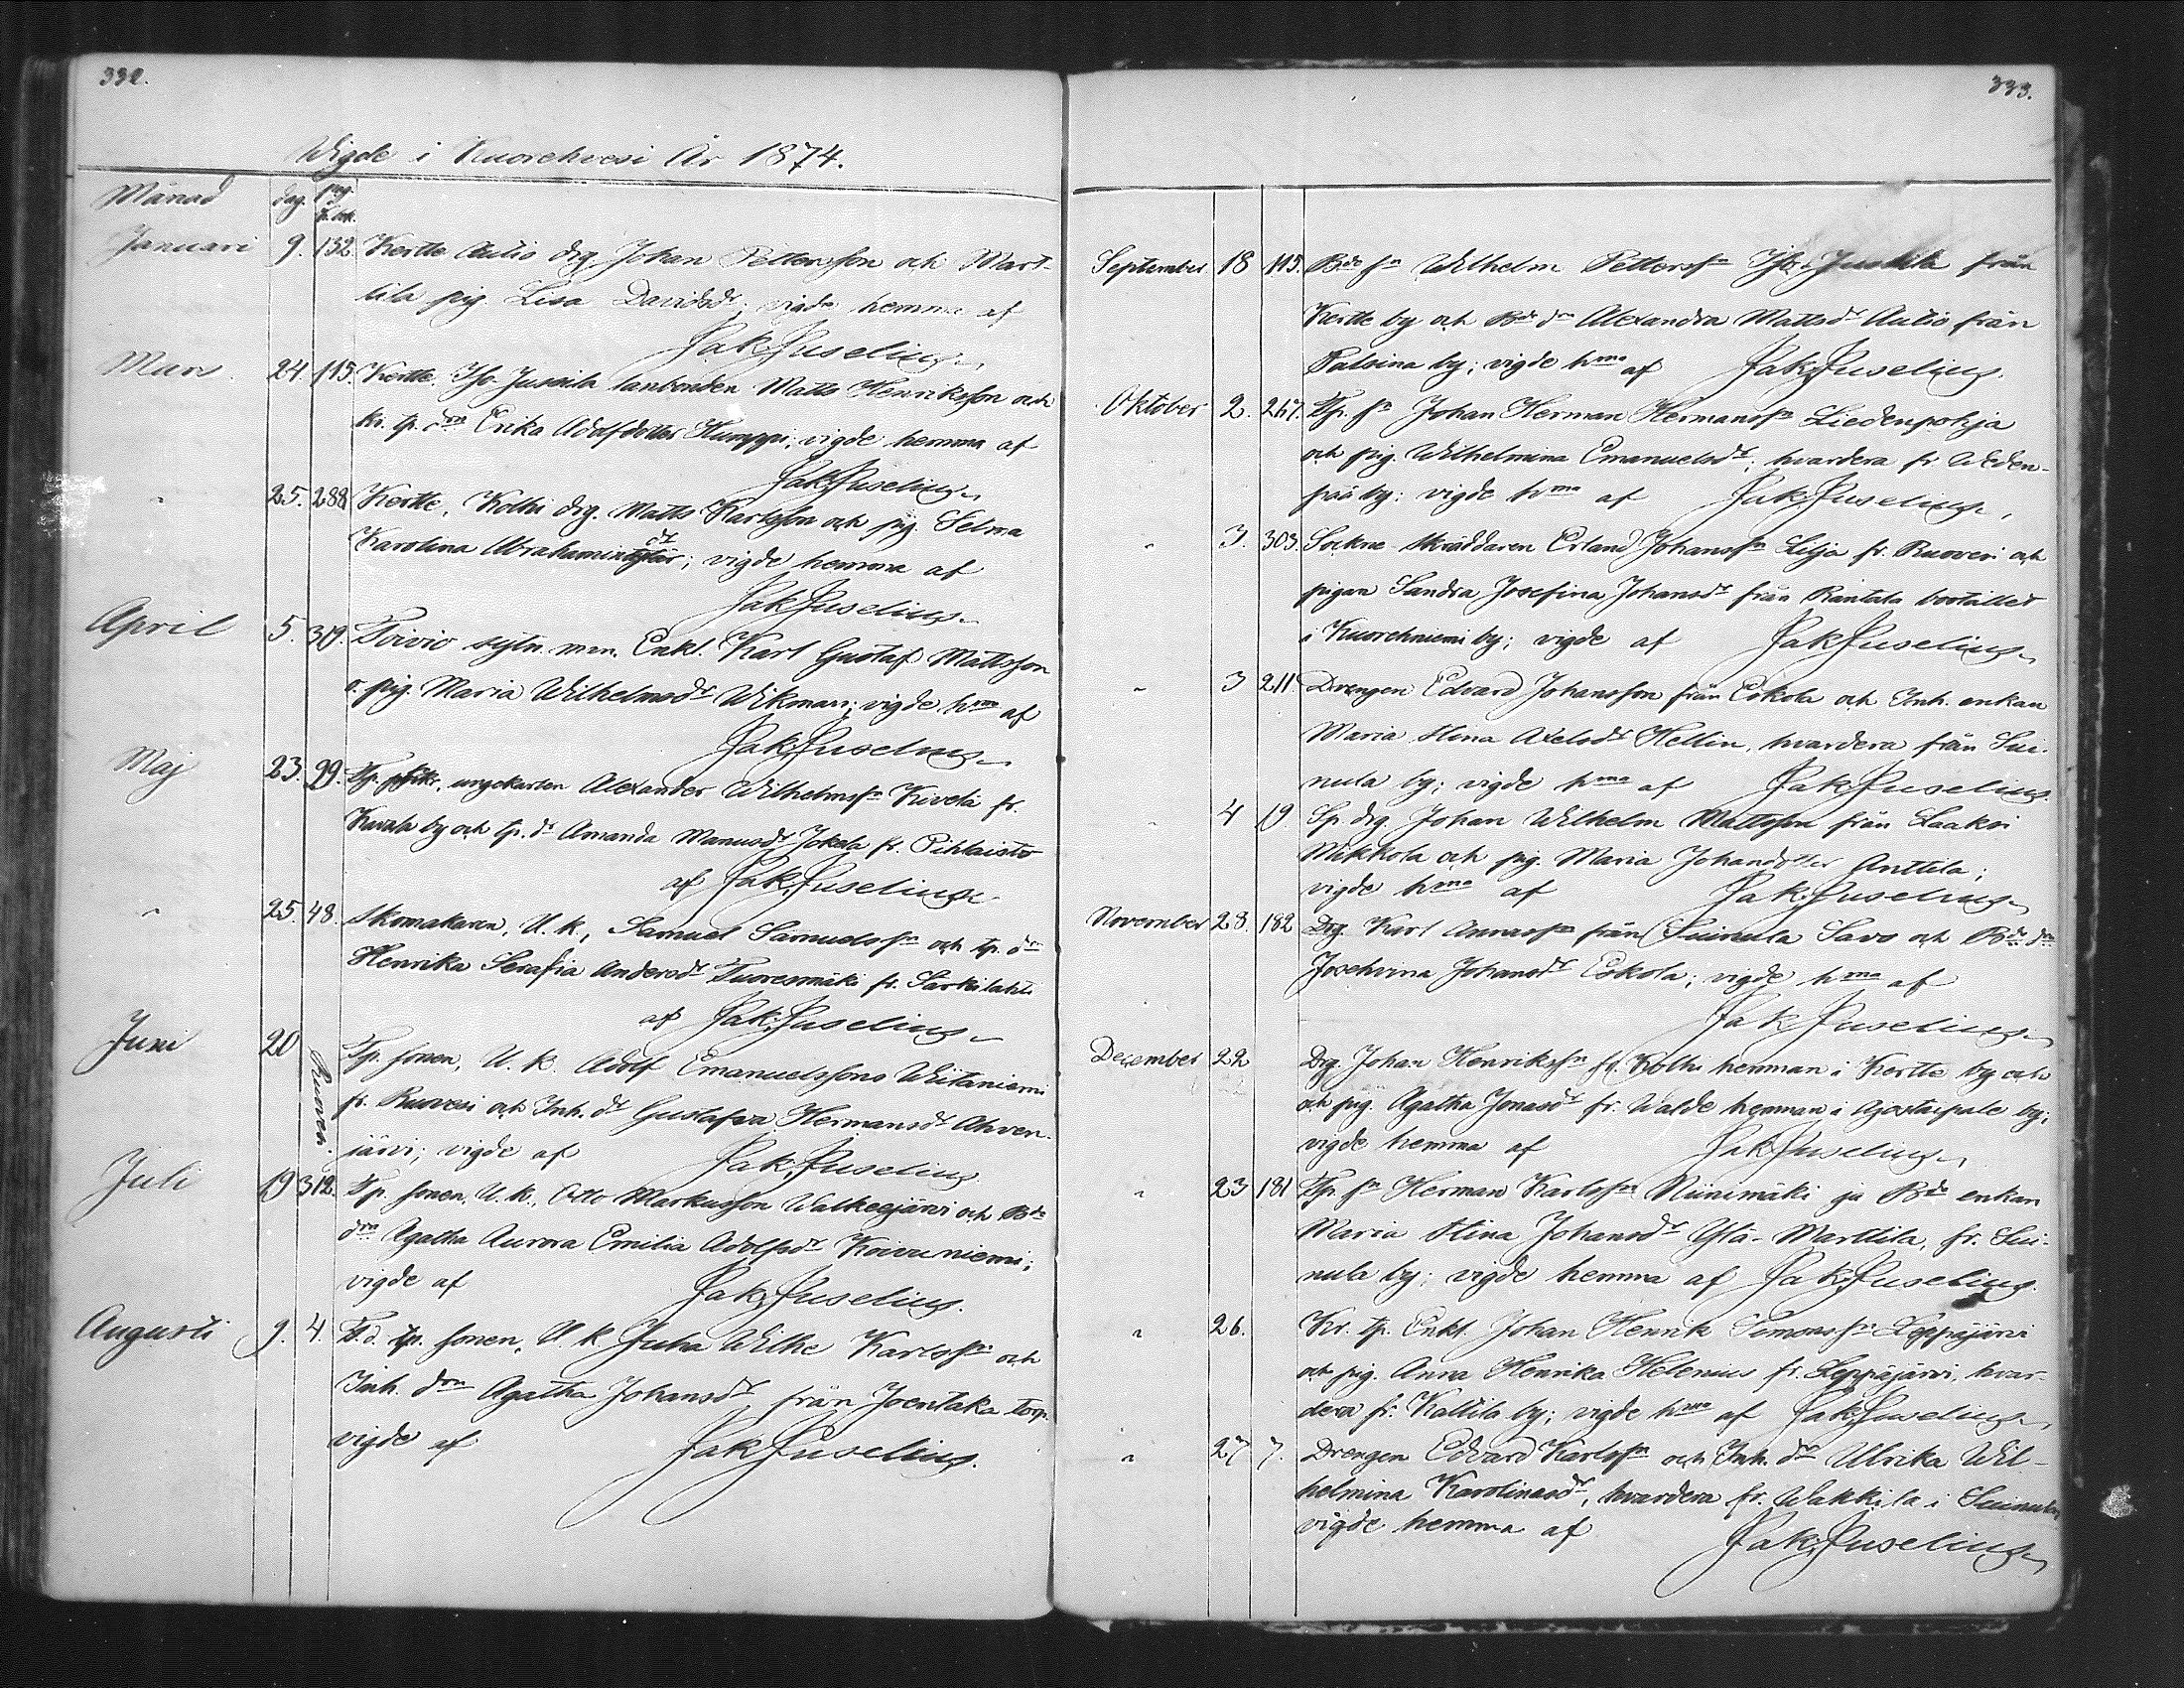 332.
Wigde i Kuorehvesi År 1874.
Månad dag. pag. k. bok.
Januari 9. 132. Kertte Autio drg Johan Pettersson och Mart-
tila pig. Lisa Davidsdr; vigde hemma af
Jak. Juselius.
Mars 24. 115. Kertte Yso Jussila lanbonden Matts Henriksson och
kr. tp. drn Erika Adolfdotter Humppi; vigde hemma af
Jak. Juselius
" 25. 288 Kertte, Kolhi drg. Matts Karlsson och pig. Selma
Karolina Abrahamintytär dr; vigde hemma af
Jak. Juselius.
April 5. 319. Toivio sytn. mn. Enkl. Karl Gustaf Mattsson
o. pig. Maria Wilhelmsdr Wikman; vigde hma af
Jak. Juselius
Maj 23. 99. Tp. ungekarlen Alexander Wilhelmsn Kivelä fr.
Kavala by och tp. dr Amanda Manusdr Jokela fr. Pihlaisto
af Jak. Juselius
" 25 48. Skomakaren, U. k., Samuel Samuelssn och tp. drn
Henrika Serafia Andersdr Tuoresmäki fr. Särkilahti
af Jak. Juselius
Juni 20 Ruoves. Tp. sonen, U. k. Adolf Emanuelssons Wiitaniemi
fr. Ruovesi och Inh. dr Gustafva Hermansdr Ahven-
järvi; vigde af Jak. Juselius
Juli 19 312. Tp. sonen, U. k., Otto Markusson Walkeejärvi och Bde
drn Agatha Aurora Emilia Adolfsdr Koivuniemi;
vigde af Jak. Juselius.
Augusti 9. 4. F. d. tp. sonen, U. k. Juha Wilhe Karlssn och
Inh. drn Agatha Johansdr från Joentaka torp
vigde af Jak. Juselius.
333.
September 18 115. Bde sn Wilhelm Petterssn Yso Jussila från
Kertte by och Bde drn Alexandra Mattsdr Autio från
Palsina by; vigde hma af Jak. Juselius.
Oktober 2. 267. Tp. sn Johan Herman Hermanssn Liedenpohja
och pig. Wilhelmina Emanuelsdr; hvardera fr. Weden-
pää by; vigde hma af Jak. Juselius,
" 3. 303. Sockne skräddaren Erland Johanssn Lilja fr. Ruovesi och
pigan Sandra Josefina Johansdr från Rantala bostället
i Kuorehniemi by; vigde af Jak. Juselius
" 3 211. Drengen Edvard Johansson från Eskola och Inh. enkan
Maria Stina Axelsdr Hellin, hvardera från Sui-
nula by; vigde hma af Jak. Juselius.
" 4 19. Sp. drg. Johan Wilhelm Mattsson från Laaksi
Mikkola och pig. Maria Johansdotter Anttila;
vigde hma af Jak. Juselius
November 28. 182 Drg. Karl Annassn från Suinula Savo och Bde drn
Josehvina Johansdr Eskola; vigde hma af
Jak Juselius
December 22 Drg. Johan Henrikssn fr. Kolhi hemman i Kertte by och
och pig. Agatha Jonasdr fr. Walde hemman i Ajostaipale by;
vigde hemma af Jak Juselius
" 23 181 Tp. sn Herman Karlssn Niinimäki ja Bde enkan
Maria Stina Johansdr Ylä-Marttila, fr. Sui-
nula by; vigde hemma af Jak. Juselius.
" 26. Kr. tp. Enkl. Johan Henrik Simonssn Leppäjärvi
och pig. Anna Henrika Helenius fr. Leppäjärvi, hvar-
dera fr. Kaltila by; vigde hma af Jak. Juselius,
" 27 7. Drengen Edvard Karlssn och Inh. dr Ulrika Wil-
helmina Karolinasdr, hvardera fr. Wakkila i Suinula;
vigde hemma af Jak. Juselius